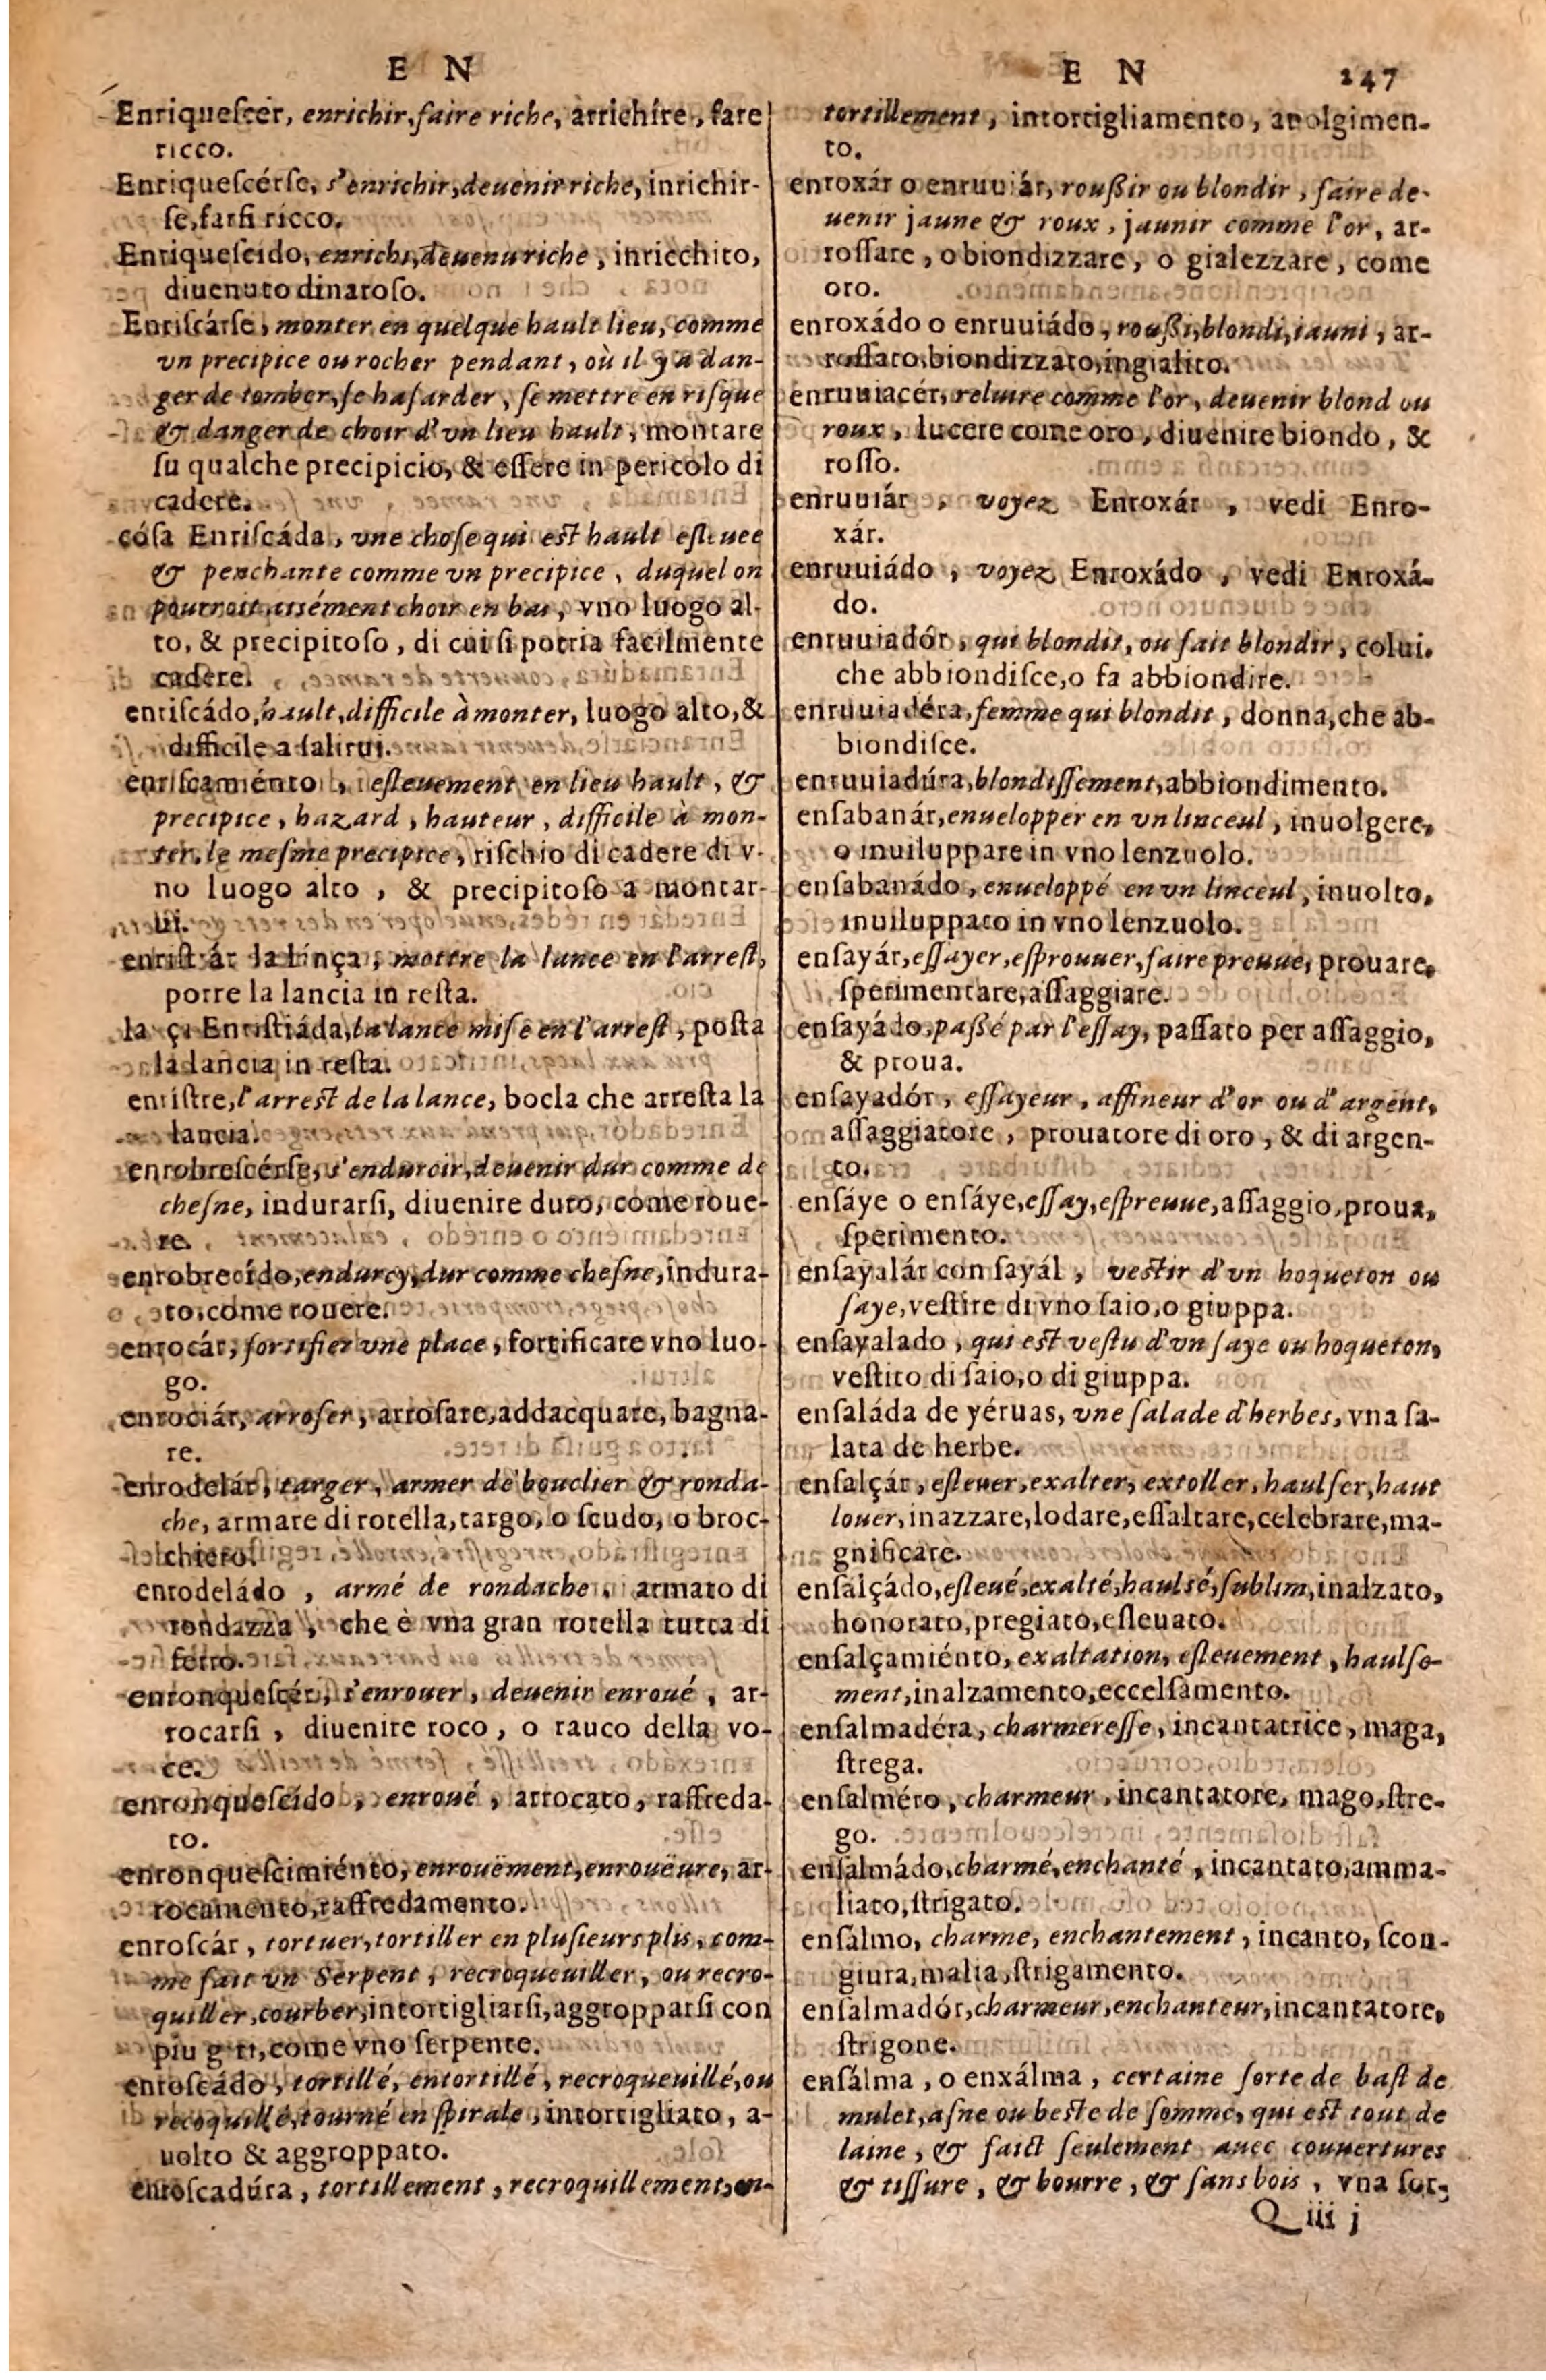 E N
Enriqueſcér, enrichir, faire riche, arrichíre, fare
ricco.
Enriqueſcérſe, s'enrichir, deuenir riche, inrichir-
ſe, farſi ricco.
Enriqueſcido, enrichi, deuenu riche, inricchito,
diuenuto dinaroſo.
Enriſcárſe, monter en quelque hault lieu, comme
vn precipice ou rocher pendant, où il y a dan-
ger de tomber, ſe haſarder, ſe mettre en riſque
& danger de choir d'vn lieu hault, montare
ſu qualche precipicio, & eſſere in pericolo di
cadere.
cóſa Enriſcáda, vne choſe qui eſt hault eſleuee
& penchante comme vn precipice, duquel on
pourroit aisément choir en bas, vno luogo al-
to, & precipitoſo, di cui ſi potria facilmente
cadere.
enriſcádo, hault, difficile à monter, luogo alto, &
difficile a ſalirui.
enriſcamiénto, eſleuement en lieu hault, &
precipice, hazard, hauteur, difficile à mon-
ter, le meſme precipice, riſchio di cadere di v-
no luogo alto, & precipitoſo a montar-
ui.
enriſtrár la lánça, mettre la lance en l'arreſt,
porre la lancia in reſta.
la ça Enriſtiáda, la lance miſe en l'arreſt, poſta
la lancia in reſta.
enriſtre, l'arreſt de la lance, bocla che arreſta la
lancia.
enrobreſcérſe, s'endurcir, deuenir dur comme de
cheſne, indurarſi, diuenire duro, come roue-
re.
enrobrecído, endurcy, dur comme cheſne, indura-
to, come rouere.
enrocár, fortifier vne place, fortificare vno luo-
go.
enrociár, arroſer, arroſare, addacquare, bagna-
re.
enrodelár, targer, armer de bouclier & ronda-
che, armare di rotella, targo, o ſcudo, o broc-
chiero.
enrodeládo, armé de rondache, armato di
rondazza, che è vna gran rotella tutta di
ferro.
enronqueſcér, s'enrouer, deuenir enroué, ar-
rocarſi, diuenire roco, o rauco della vo-
ce.
enronqueſcído, enroué, arrocato, raffreda-
to.
enronqueſcimiénto, enrouëment, enrouëure, ar-
rocamento, raffredamento.
enroſcár, tortuer, tortiller en pluſieurs plis, com-
me fait vn Serpent, recroqueuiller, ou recro-
quiller, courber, intortigliarſi, aggropparſi con
piu giri, come vno ſerpente.
enroſcádo, tortillé, entortillé, recroqueuillé, ou
recoquillé, tourné en ſpirale, intortigliato, a-
uolto & aggroppato.
enroſcadúra, tortillement, recroquillement, en-
E N 247
tortillement, intortigliamento, auolgimen-
to.
enroxár o enruuiár, rouſsir ou blondir, faire de-
uenir jaune & roux, jaunir comme l'or, ar-
roſſare, o biondizzare, o gialezzare, come
oro.
enroxádo o enruuiádo, rouſsi, blondi, iauni, ar-
roſſato, biondizzato, ingialito.
enruuiacér, reluire comme l'or, deuenir blond ou
roux, lucere come oro, diuenire biondo, &
roſſo.
enruuiár, voyez Enroxár, vedi Enro-
xár.
enruuiádo, voyez Enroxádo, vedi Enroxá-
do.
enruuiadór, qui blondit, ou fait blondir, colui.
che abbiondiſce, o fa abbiondire.
enruuiadéra, femme qui blondit, donna, che ab-
biondiſce.
enruuiadúra, blondiſſement, abbiondimento.
enſabanár, enuelopper en vn linceul, inuolgere,
o inuiluppare in vno lenzuolo.
enſabanádo, enueloppé en vn linceul, inuolto,
inuiluppato in vno lenzuolo.
enſayár, eſſayer, eſprouuer, faire preuue, prouare,
ſperimentare, aſſaggiare.
enſayádo, paſsé par l'eſſay, paſſato per aſſaggio,
& proua.
enſayadór, eſſayeur, affineur d'or ou d'argent,
aſſaggiatore, prouatore di oro, & di argen-
to.
enſáye o enſáye, eſſay, eſpreuue, aſſaggio, proua,
ſperimento.
enſayalár con ſayál, veſtir d'vn hoqueton ou
ſaye, veſtire di vno ſaio, o giuppa.
enſayalado, qui eſt veſtu d'vn ſaye ou hoqueton,
veſtito di ſaio, o di giuppa.
enſaláda de yéruas, vne ſalade d'herbes, vna ſa-
lata de herbe.
enſalçár, eſleuer, exalter, extoller, haulſer, haut
louer, inazzare, lodare, eſſaltare, celebrare, ma-
gnificare.
enſalçádo, eſleué, exalté, haulsé, ſublim, inalzato,
honorato, pregiato, eſleuato.
enſalçamiénto, exaltation, eſleuement, haulſe-
ment, inalzamento, eccelſamento.
enſalmadéra, charmereſſe, incantatrice, maga,
ſtrega.
enſalméro, charmeur, incantatore, mago, ſtre-
go.
enſalmádo, charmé, enchanté, incantato, amma-
liato, ſtrigato.
enſálmo, charme, enchantement, incanto, ſcon-
giura, malia, ſtrigamento.
enſalmadór, charmeur, enchanteur, incantatore,
ſtrigone.
enſálma, o enxálma, certaine ſorte de baſt de
mulet, aſne ou beſte de ſomme, qui eſt tout de
laine, & faict ſeulement auec couuertures
& tiſſure, & bourre, & ſans bois, vna ſor-
Q iii j